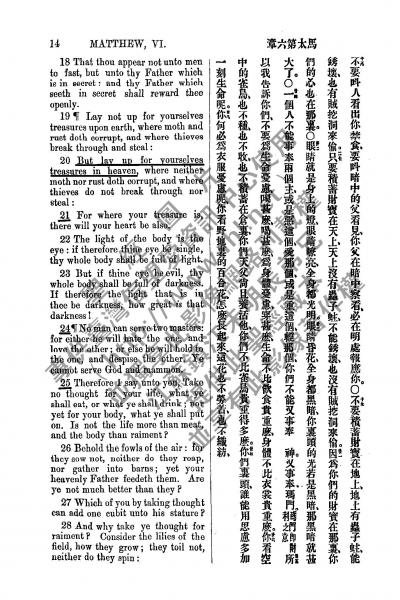 14 MATTHEW, VI.
18 That thou appear not unto men
to fast, but unto thy Father which
is in secret: and thy Father which
seeth in secret shall reward thee
openly.
19 ¶ Lay not up for yourselves
treasures upon earth, where moth and
rust doth corrupt, and where thieves
break through and steal:
20 But lay up for yourselves
treasures in heaven, where neither
moth nor rust doth corrupt, and where
thieves do not break through nor
steal:
21 For where your treasure is,
there will your heart be also.
22 The light of the body is the
eye: if therefore thine eye be single,
thy whole body shall be full of light.
23 But if thine eye be evil, thy
whole body shall be full of darkness.
If therefore the light that is in
thee be darkness, how great is that
darkness!
24 ¶ No man can serve two masters:
for either he will hate the one, and
love the other; or else he will hold to
the one, and despise the other. Ye
cannot serve God and mammon.
25 Therefore I say unto you, Take
no thought for your life, what ye
shall eat, or what ye shall drink; nor
yet for your body, what ye shall put
on. Is not the life more than meat,
and the body than raiment?
26 Behold the fowls of the air: for
they sow not, neither do they reap,
nor gather into barns; yet your
heavenly Father feedeth them. Are
ye not much better than they?
27 Which of you by taking thought
can add one cubit unto his stature?
28 And why take ye thought for
raiment? Consider the lilies of the
field, how they grow; they toil not,
neither do they spin:
馬太第六章
不要叫人看出你禁食、要叫暗中的父看見、你父在暗中察看、必在明處報應你。○不要積蓄財寶在地上、地上有蟲子蛀、能
銹壞、也有賊挖洞來偷。只要積蓄財寶在天上、天上沒有蟲子蛀、不能銹壞、也沒有賊挖洞來偷。因爲你們的財寶在那裏、你
們的心也在那裏。○眼睛就是身上的燈、眼睛瞭亮、全身都光明、眼睛昏花、全身都黑暗、你裏頭的光若是黑暗、那黑暗就甚
大了。○一個人不能事奉兩個主、或是惡這個愛那個、或是重這個輕那個、你們不能又事奉 神、又事奉瑪門。所
以我告訴你們、不要爲生命憂慮喫甚麽喝甚麽、爲身體憂慮穿甚麽、生命不比飲食貴重麽、身體不比衣裳貴重麽。你看空
中的雀鳥、也不種、也不收、也不積蓄在倉裏、你們天父尚且養活他、你們不比雀鳥貴重得多麽。你們裏頭誰能用思慮多加
一刻生命呢。你何必爲衣服憂慮呢、你看野地裏的百合花、怎麽長起來、這花也不勞苦、也不織紡、